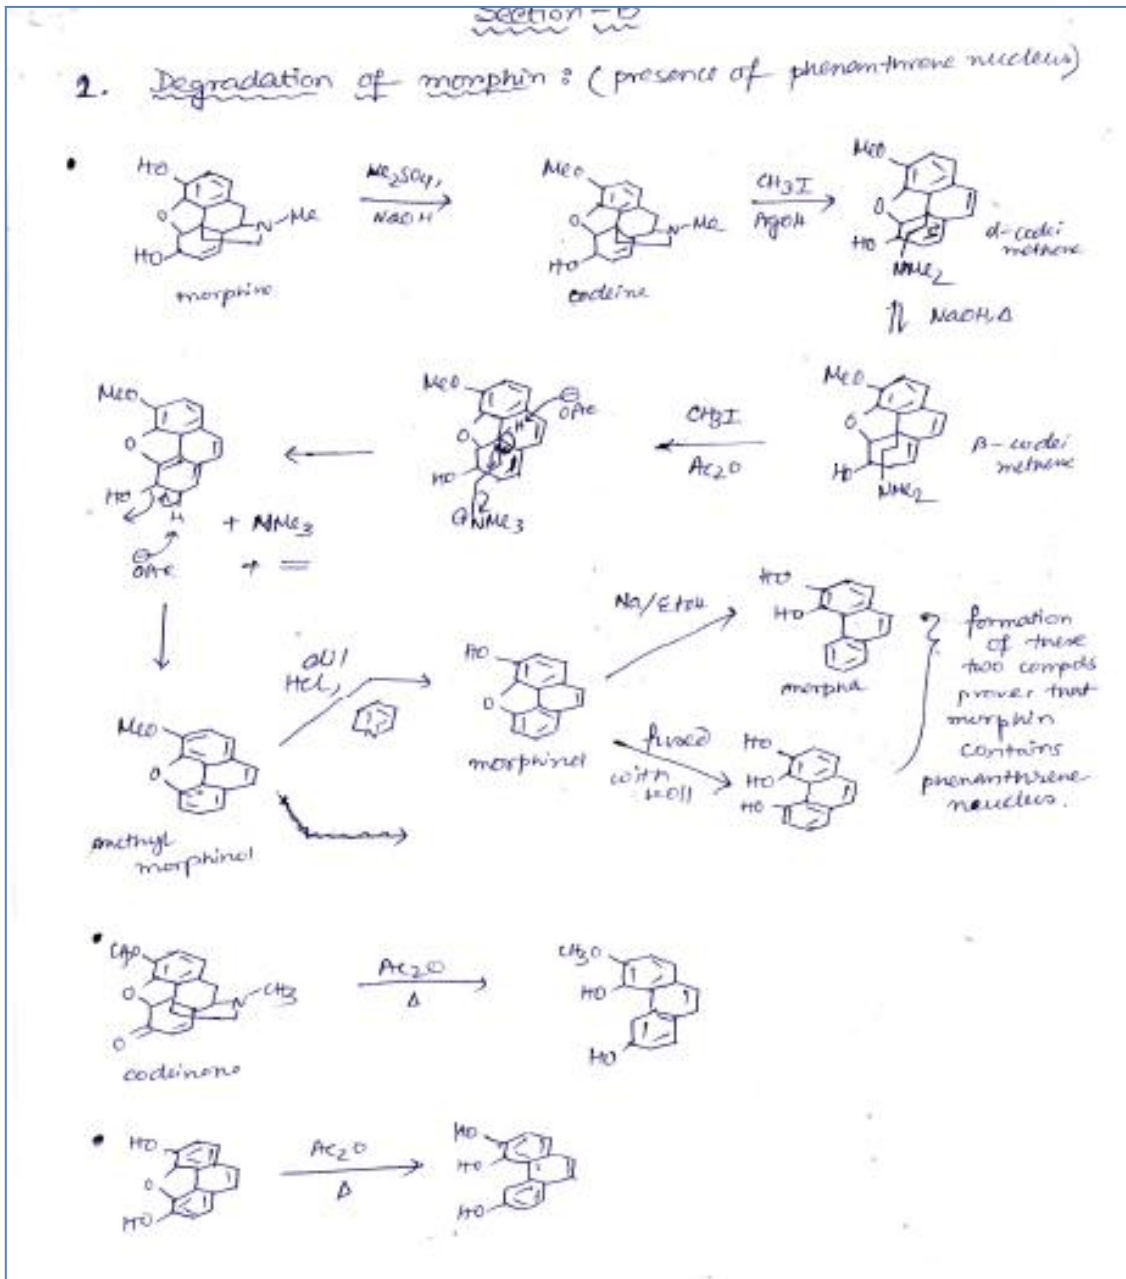 Section - D
2. Degradation of morphin : (presence of phenanthrene nucleus)
HO
O
HO
N-Me
morphine
Me2SO4,
NaOH
MeO
O
HO
N-Me
codeine
CH3I
AgOH
MeO
O
HO
NMe2
α-codei
methene
NaOH, Δ
MeO
O
HO
NMe2
β-codei
methene
CH3I
Ac2O
MeO
O
HO
H
⊖
OAc
NMe3
MeO
O
HO
H
⊖
OAc
+ NMe3
+ =
MeO
O
methyl
morphinol
HCl,
N
HO
O
morphinol
Na/EtOH
HO
HO
fused
with
KOH
HO
HO
HO
formation
of these
two compds
proves that
morphin
contains
phenanthrene
naucleus.
CH3O
O
O
N-CH3
codeinone
Ac2O
Δ
CH3O
HO
HO
HO
O
HO
Ac2O
Δ
HO
HO
HO